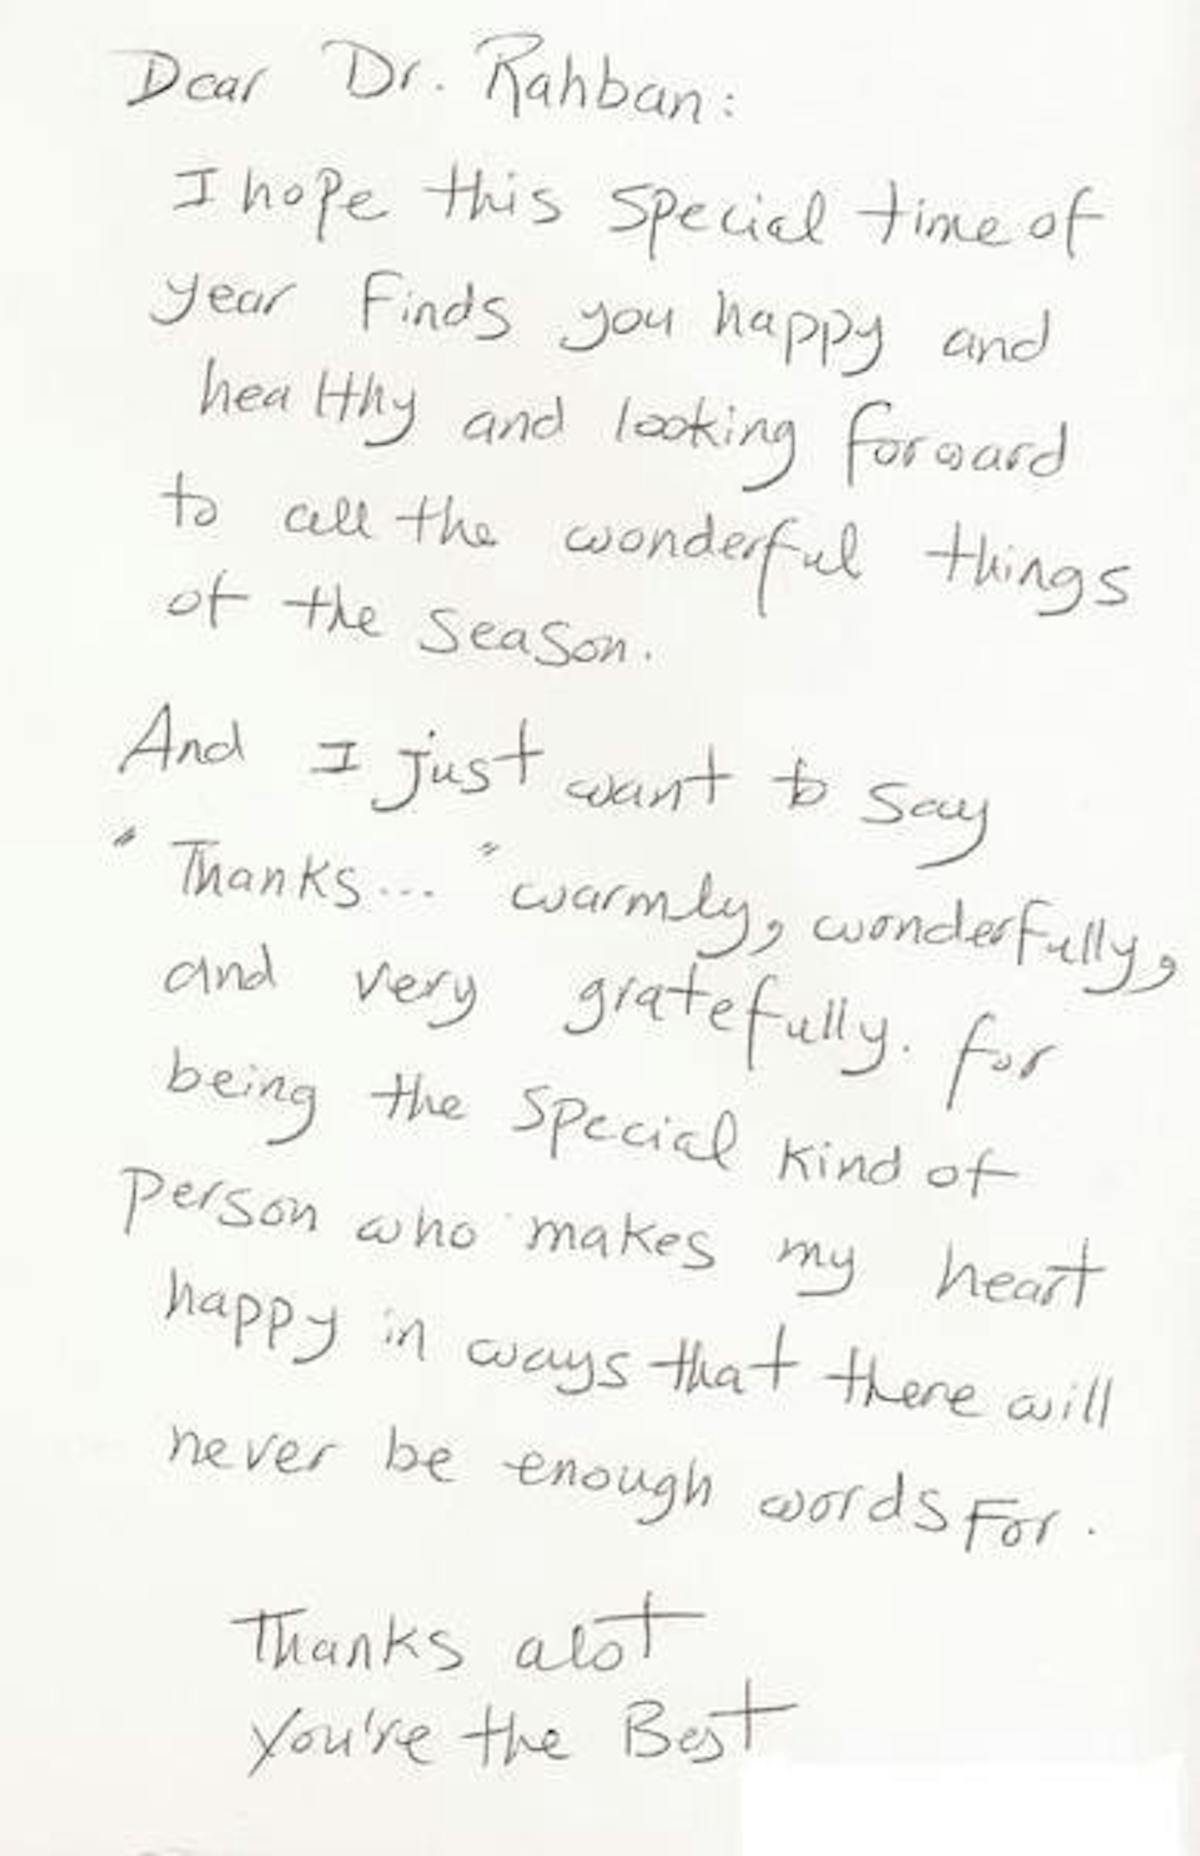 Dear Dr. Rahban:
I hope this special time of
year finds you happy and
healthy and looking forward
to all the wonderful things
of the season.
And I just want to say
"Thanks..." warmly, wonderfully,
and very gratefully. for
being the special kind of
person who makes my heart
happy in ways that there will
never be enough words for.
Thanks alot
You're the Best